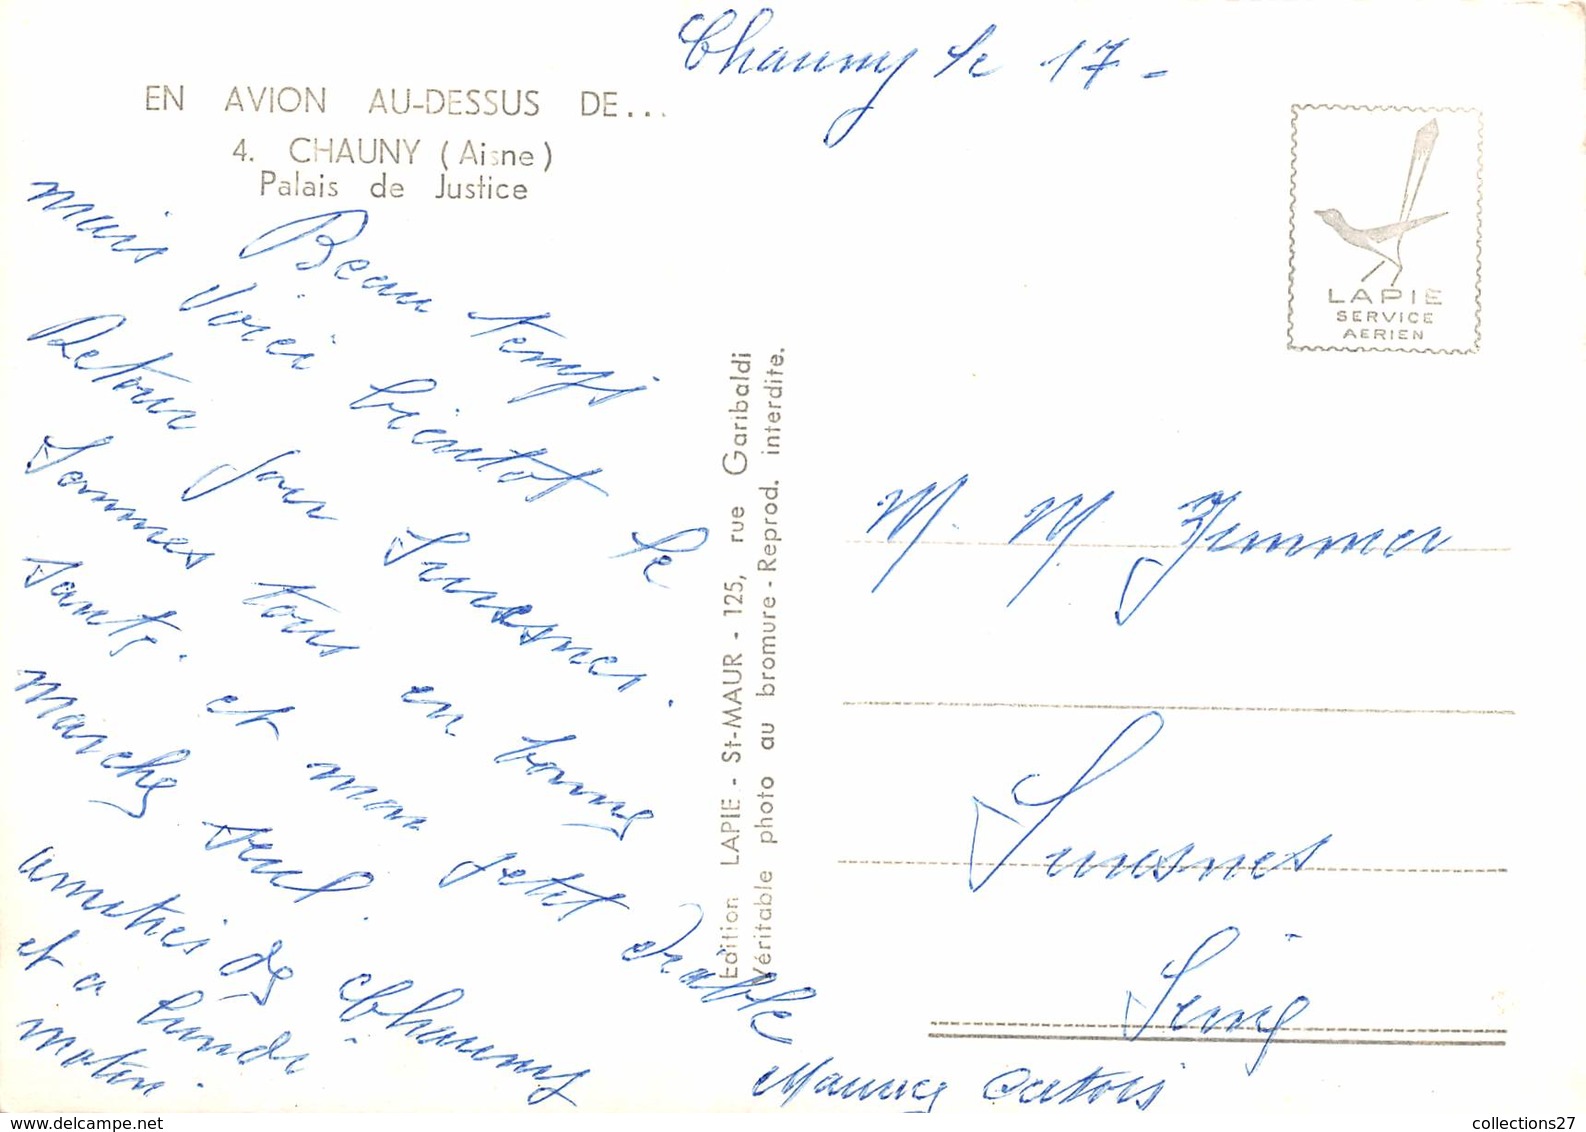 Chauny le 17 -
EN AVION AU-DESSUS DE...
4. CHAUNY (Aisne)
Palais de Justice
LAPIE
SERVICE
AERIEN
Beau temps
mais voici bientot le
Retour sur Suresnes.
Sommes tous en bonne
santé. et mon petit diable
marche seul.
amitiés de Chauny
et a lundi
matin.
Maurice
Edition LAPIE - St-MAUR - 125, rue Garibaldi
Véritable photo au bromure - Reprod. interdite.
M. M. Zimmer
Suresnes
Seine
collections27